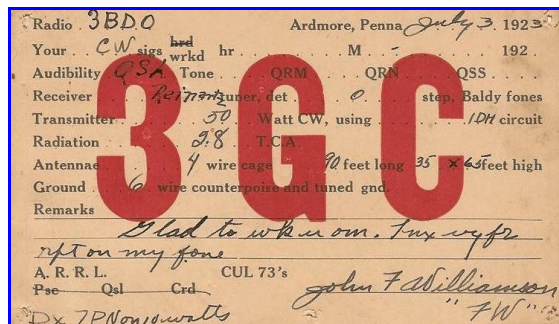 Radio 3BDO Ardmore, Penna July 3 1923
Your CW sigs hrd wrkd hr M - 192
Audibility QSA Tone QRM QRN QSS
Receiver Reinartz tuner, det 0 step, Baldy fones
Transmitter 50 Watt CW, using IDH circuit
Radiation 2.8 T.C.A.
Antennae 4 wire cage 90 feet long 35 x 65 feet high
Ground 6 wire counterpoise and tuned gnd.
3GC
Remarks
Glad to wk u om. Tnx vy fr
rpt on my fone
A. R. R. L. CUL 73's
Pse Qsl Crd John F Williamson
"FW"
Dx 7 on 10 watts